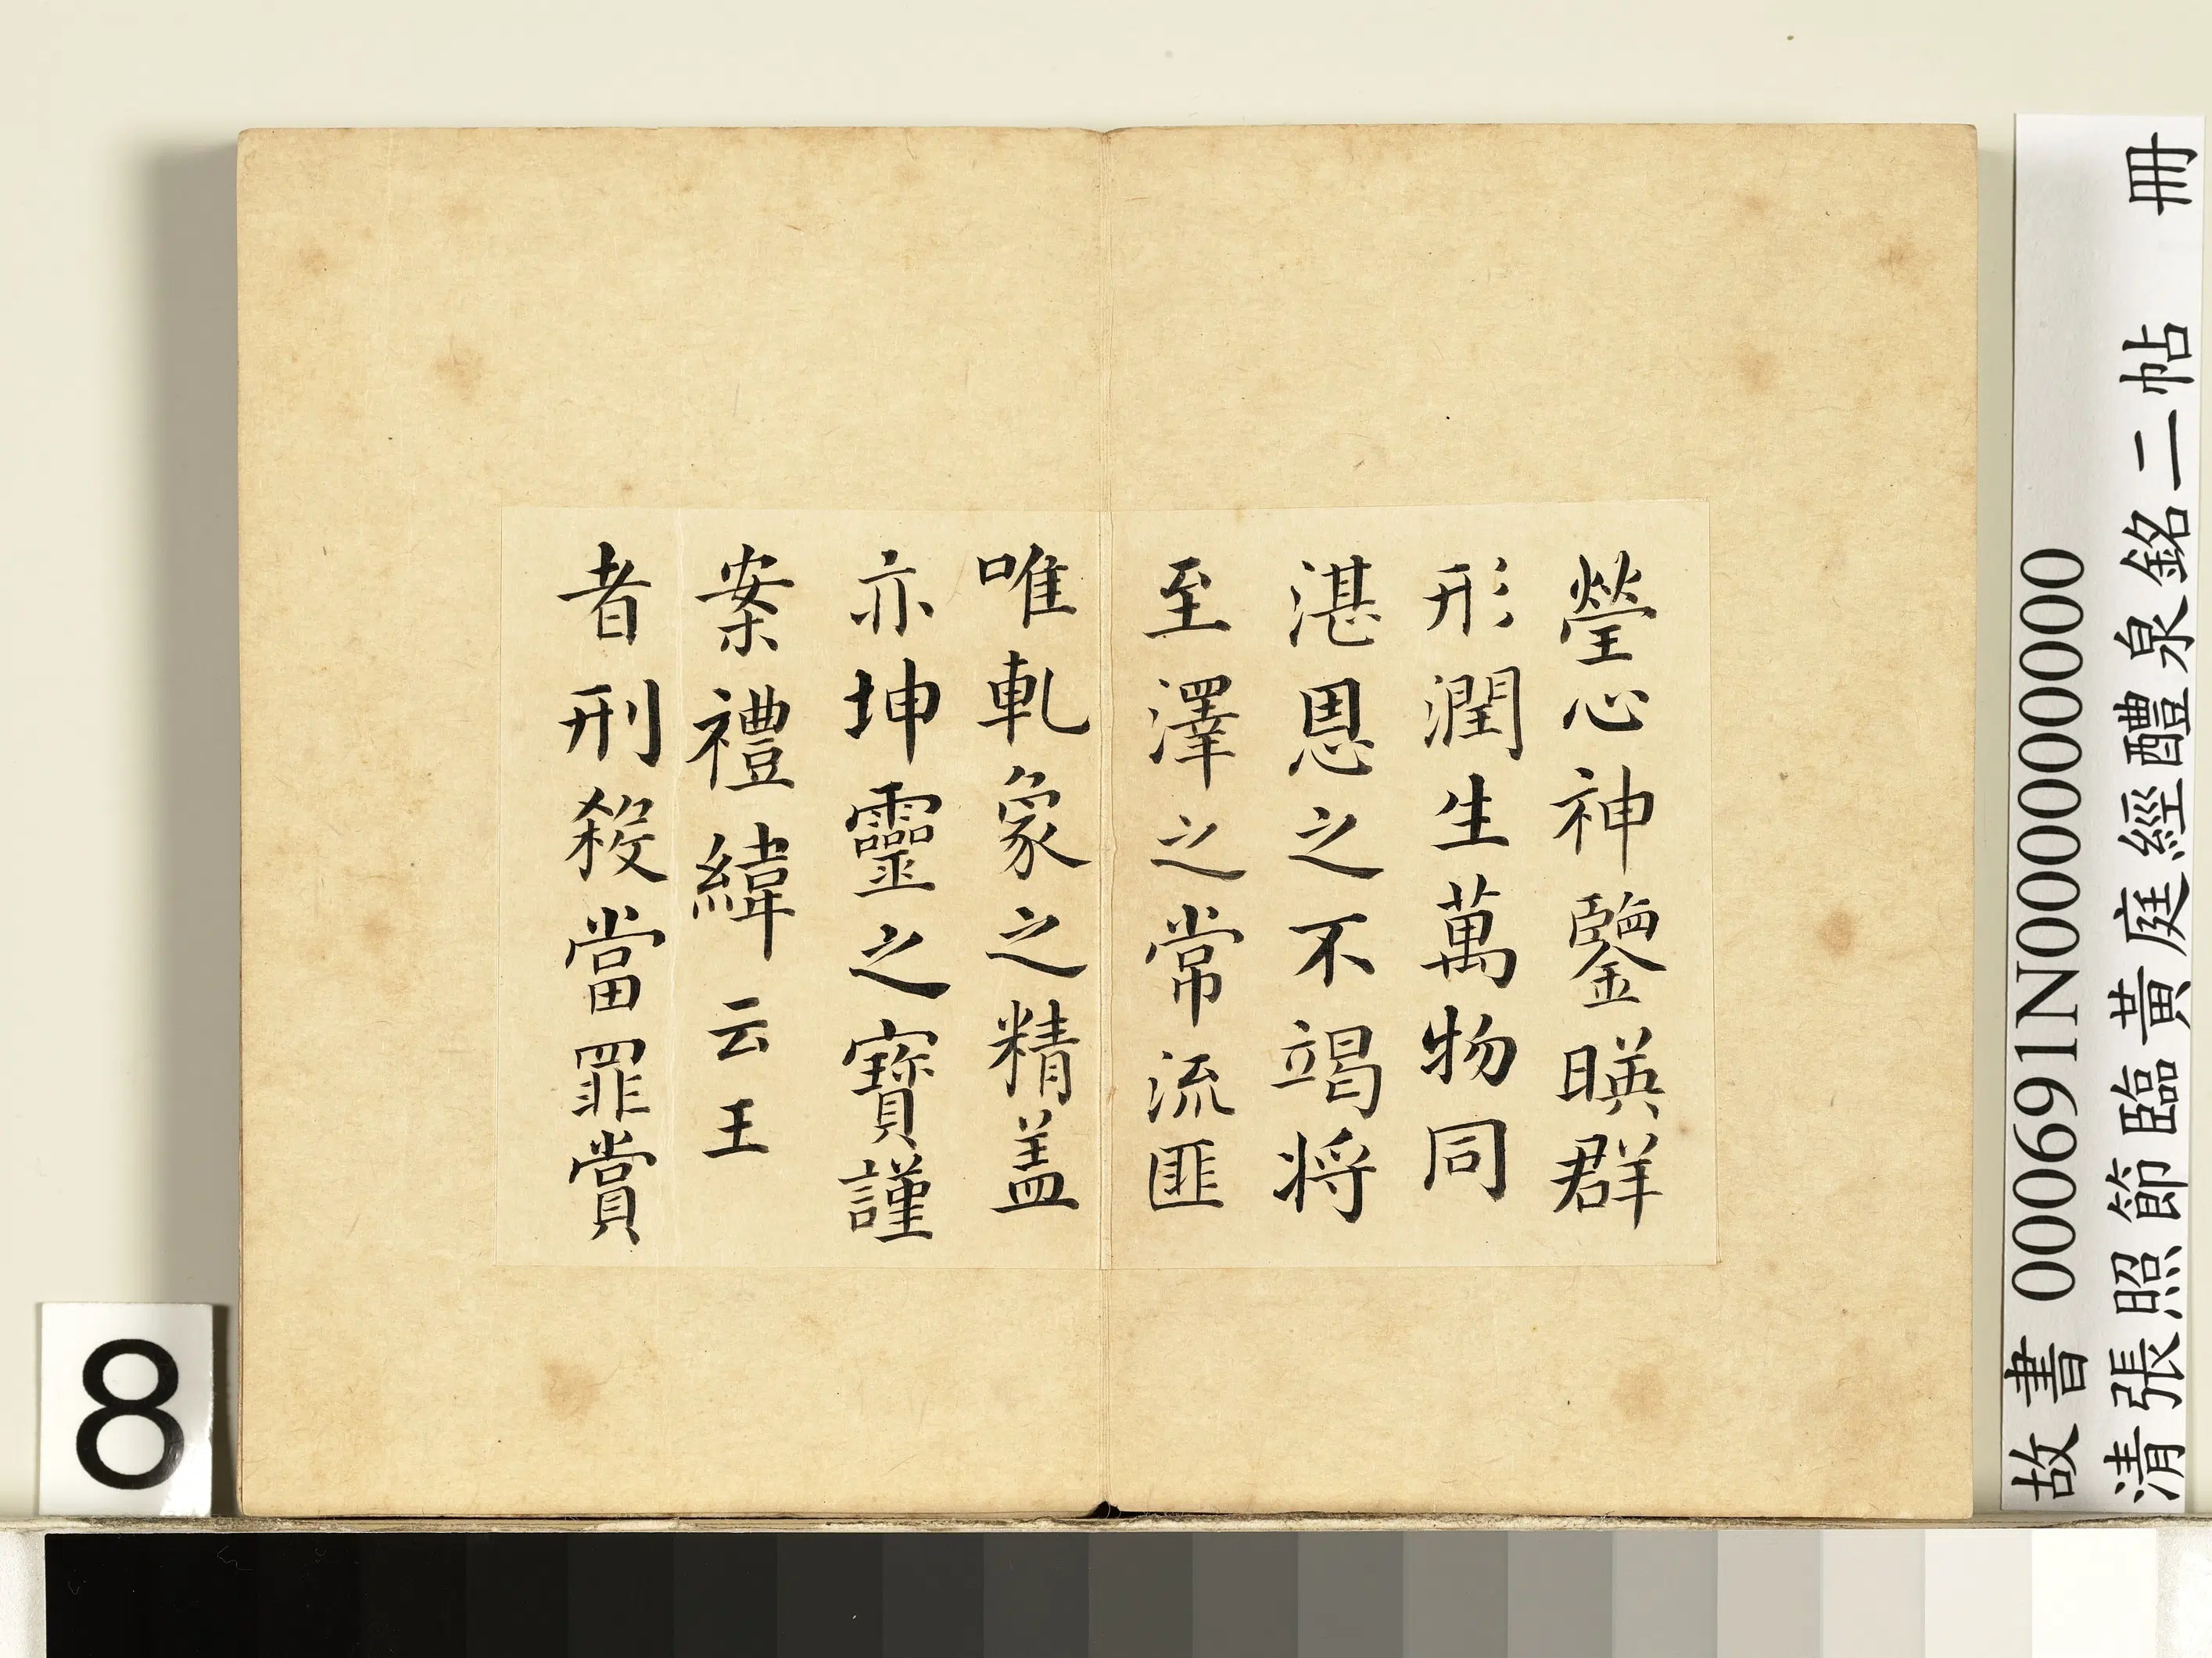 瑩心神鑒暎群
形潤生萬物同
湛恩之不竭将
至澤之常流匪
唯乹象之精盖
亦坤靈之寶謹
案禮緯云王
者刑殺當罪賞
故書 000691N000000000
清張照節臨黃庭經醴泉銘二帖 冊
8